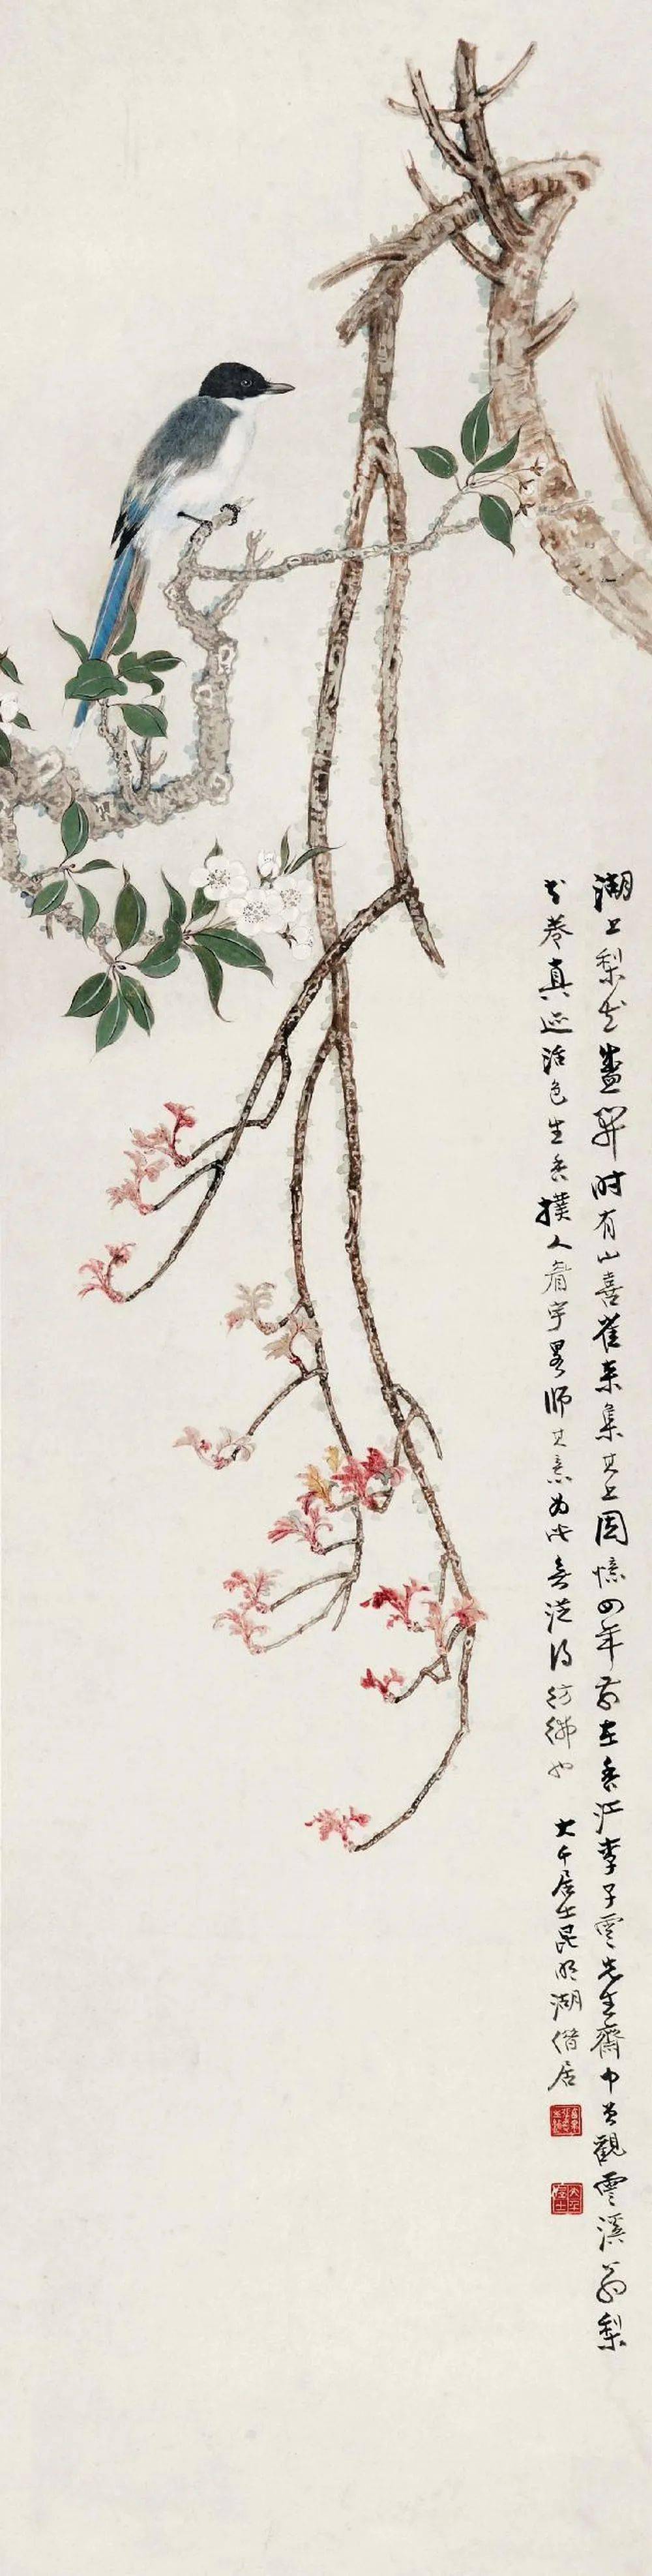 湖上梨花盛開時有山喜雀來集其上因憶四年前在香江李子雲先生齋中曾觀雲溪翁梨
花卷真迹活色生香撲人眉宇畧師其意為此無從得彷彿也
大千居士昆明湖借居
大千居士